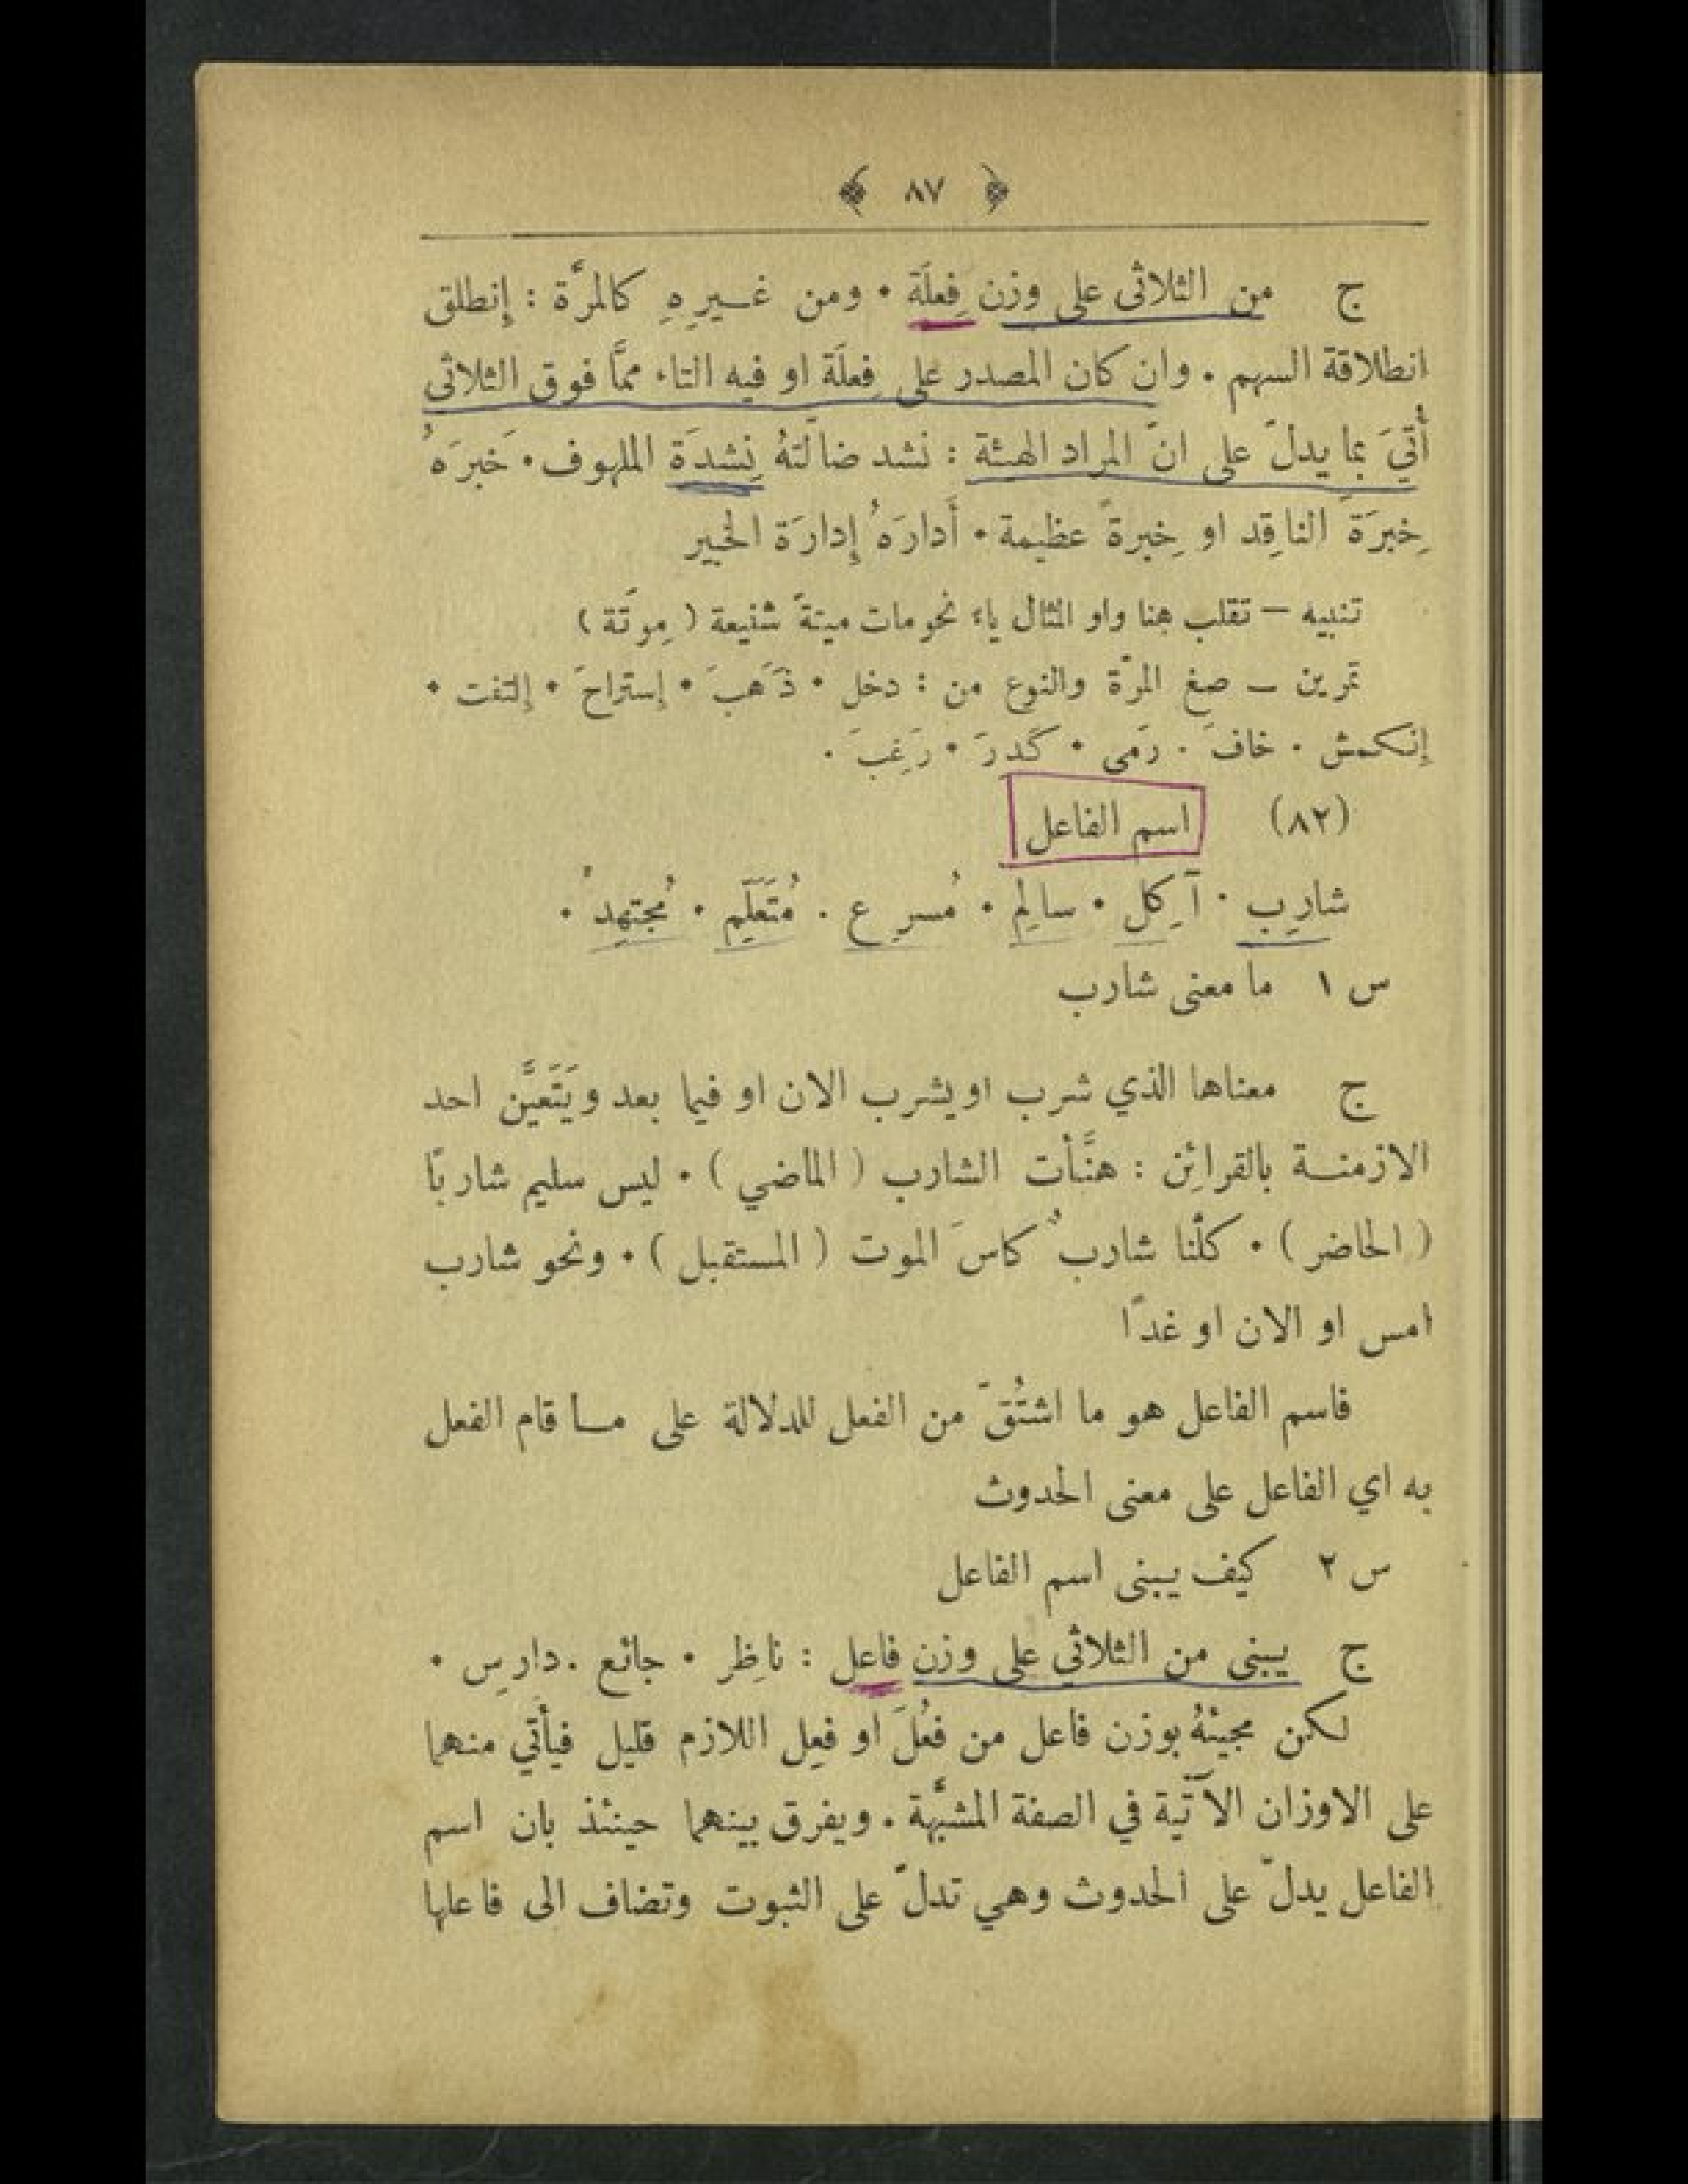 ﴿ ٨٧ ﴾
ج من الثلاثي على وزن فِعلَة • ومن غيرِهِ كالمرَّة : إِنطلق
انطلاقة السهم . وان كان المصدر على فِعلَة او فيه التاء مماَّ فوق الثلاثي
أُتيَ بما يدلّ على انّ المراد الهيئة : نشد ضالَّتهُ نِشدَة الملهوف • خَبرَهُ
خِبرَةَ الناقِد او خِبرةً عظيمة • أَدارَهُ إِدارَة الخبير
تنبيه — تقلب هنا واو المثال ياء نحو مات ميتةً شنيعة ( مِوتَة )
تمرين — صغِ المرّة والنوع من : دخل • ذَهَبَ • إستراحَ • إلتفت •
إنكمش . خافَ . رَمى • كَدرَ • رَغِبَ .
(٨٢) اسم الفاعل
شارِب • آكِل • سالِم • مُسرِع . مُتَعَلِّم • مُجتهِدٌ •
س ١ ما معنى شارب
ج معناها الذي شرب او يشرب الان او فيما بعد ويَتَعيَّن احد
الازمنة بالقرائِن : هنَّأت الشارب ( الماضي ) • ليس سليم شاربًا
( الحاضر ) • كلّنا شاربٌ كاسَ الموت ( المستقبل ) • ونحو شارب
امس او الان او غدًا
فاسم الفاعل هو ما اشتُقّ من الفعل للدلالة على ما قام الفعل
به اي الفاعل على معنى الحدوث
س ٢ كيف يبنى اسم الفاعل
ج يبنى من الثلاثي على وزن فاعِل : ناظِر • جائع . دارِس •
لكن مجيئهُ بوزن فاعل من فعُلَ او فعِل اللازم قليل فيأتي منهما
على الاوزان الآتية في الصفة المشبَّهة . ويفرق بينهما حينئذ بان اسم
الفاعل يدلّ على الحدوث وهي تدلّ على الثبوت وتضاف الى فاعلها